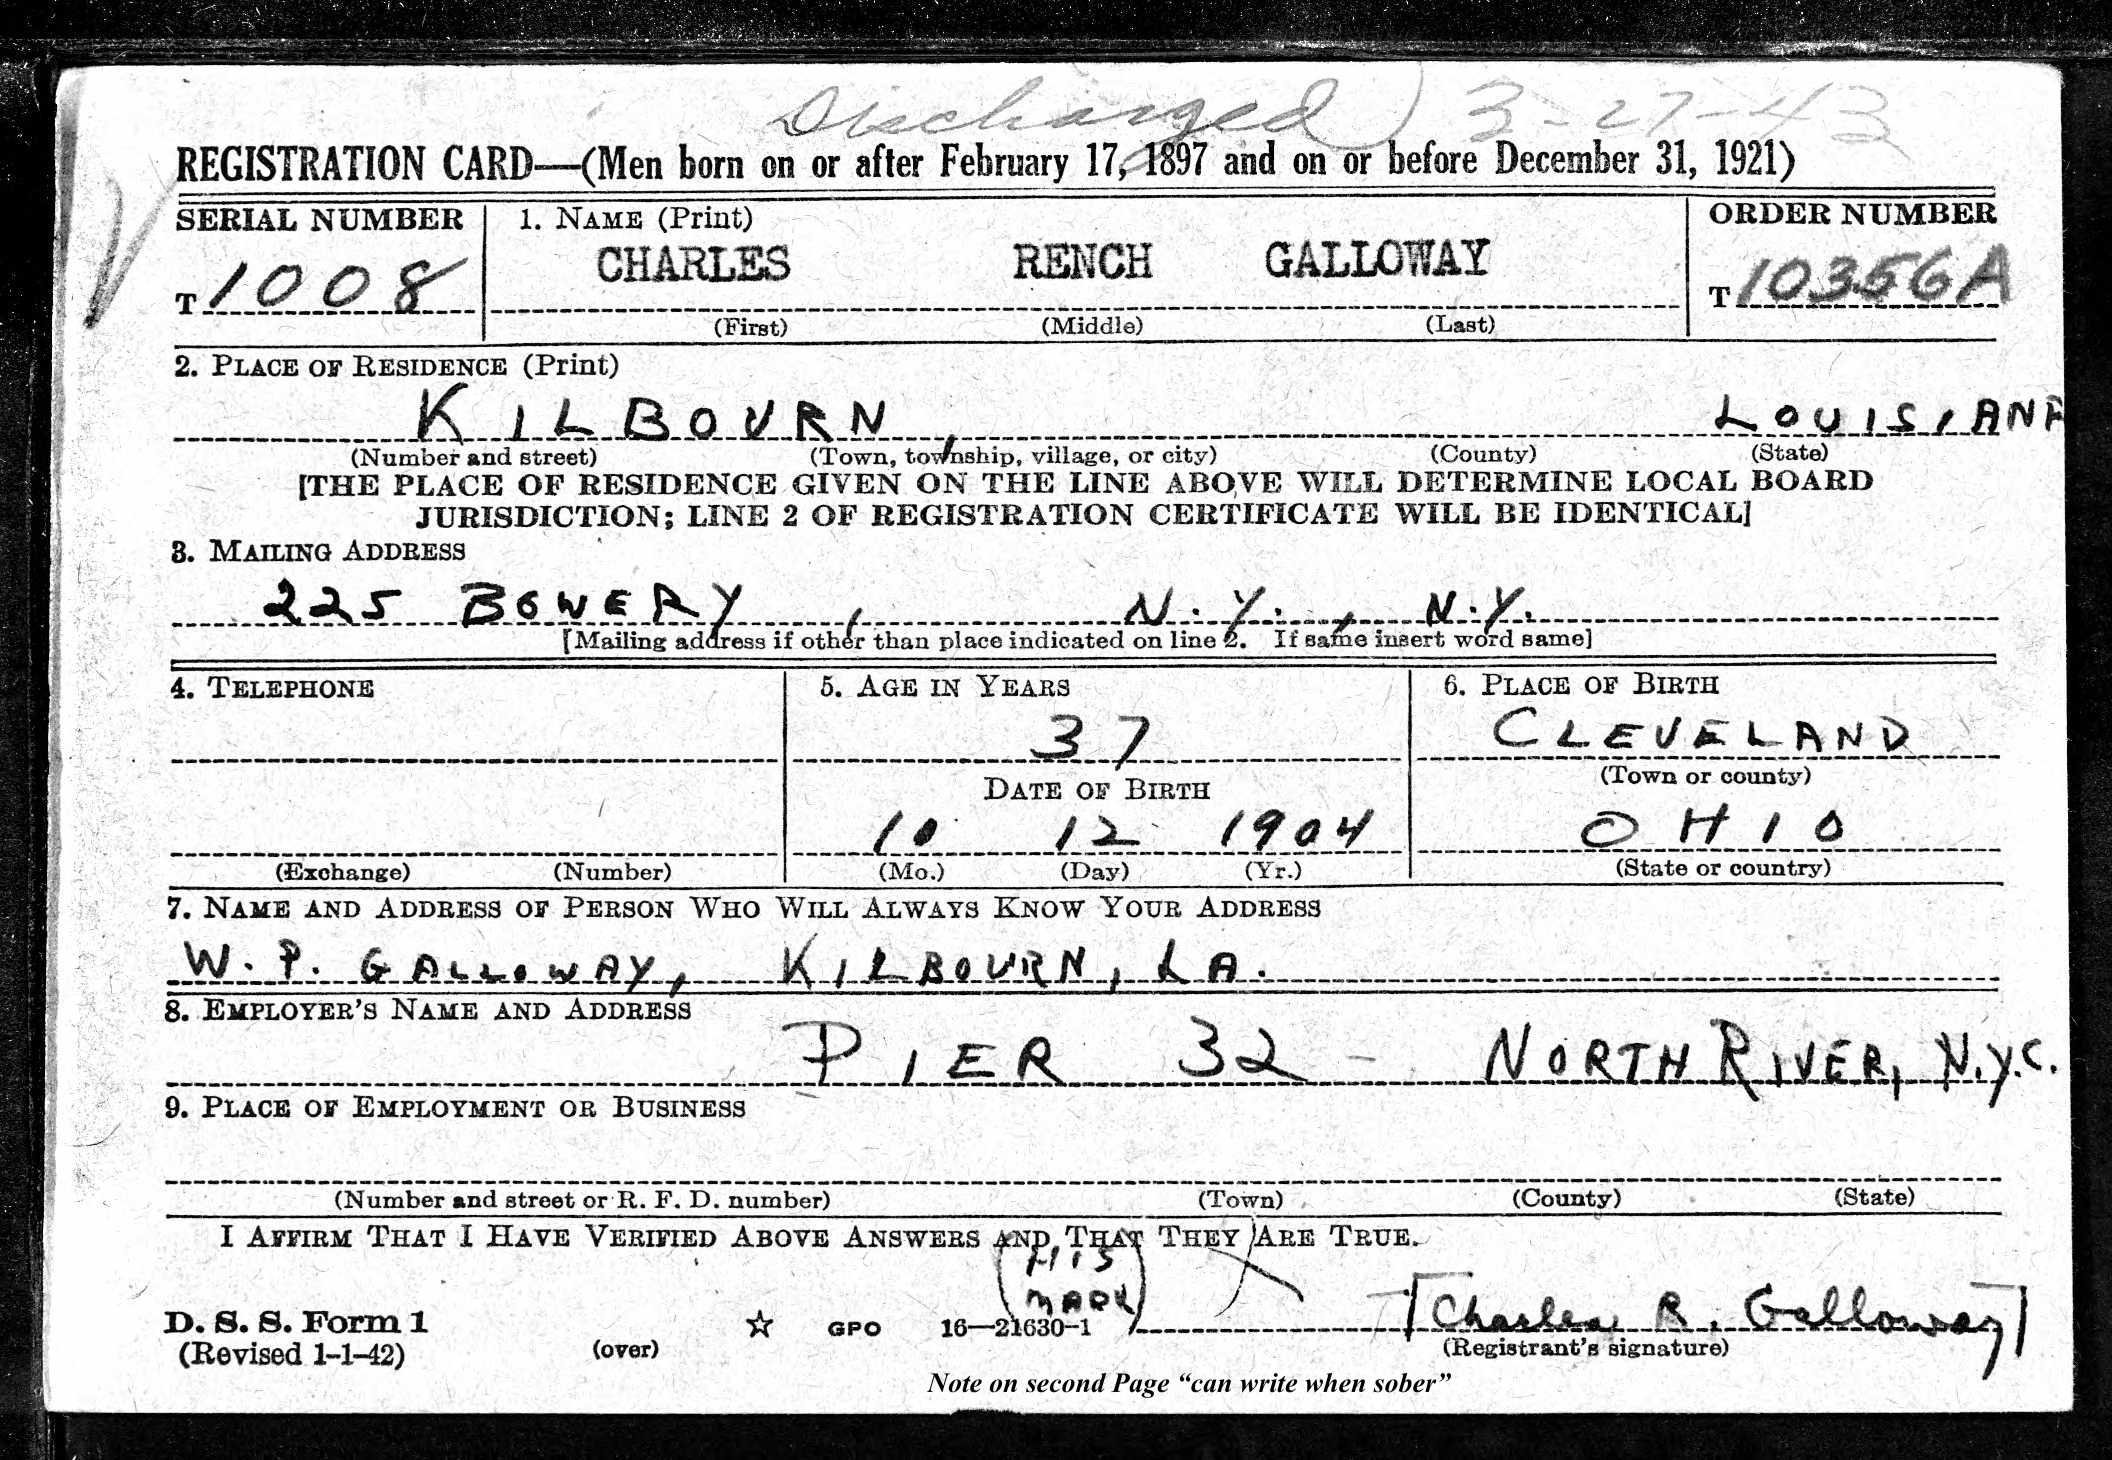 Discharged 3-27-43
REGISTRATION CARD—(Men born on or after February 17, 1897 and on or before December 31, 1921)
SERIAL NUMBER 1. NAME (Print) ORDER NUMBER
T 1008 CHARLES RENCH GALLOWAY T 10356A
(First) (Middle) (Last)
2. PLACE OF RESIDENCE (Print)
KILBOURN, LOUISIANA
(Number and street) (Town, township, village, or city) (County) (State)
[THE PLACE OF RESIDENCE GIVEN ON THE LINE ABOVE WILL DETERMINE LOCAL BOARD
JURISDICTION; LINE 2 OF REGISTRATION CERTIFICATE WILL BE IDENTICAL]
3. MAILING ADDRESS
225 BOWERY, N.Y., N.Y.
[Mailing address if other than place indicated on line 2. If same insert word same]
4. TELEPHONE 5. AGE IN YEARS 6. PLACE OF BIRTH
37 CLEVELAND
DATE OF BIRTH (Town or county)
10 12 1904 OHIO
(Exchange) (Number) (Mo.) (Day) (Yr.) (State or country)
7. NAME AND ADDRESS OF PERSON WHO WILL ALWAYS KNOW YOUR ADDRESS
W. P. GALLOWAY, KILBOURN, LA.
8. EMPLOYER'S NAME AND ADDRESS
PIER 32 - NORTH RIVER, N.Y.C.
9. PLACE OF EMPLOYMENT OR BUSINESS
(Number and street or R. F. D. number) (Town) (County) (State)
I AFFIRM THAT I HAVE VERIFIED ABOVE ANSWERS AND THAT THEY ARE TRUE.
(HIS
MARK) X [Charles R. Galloway]
D. S. S. Form 1 ☆ GPO 16—21630-1
(Revised 1-1-42) (over) (Registrant's signature)
Note on second Page “can write when sober”